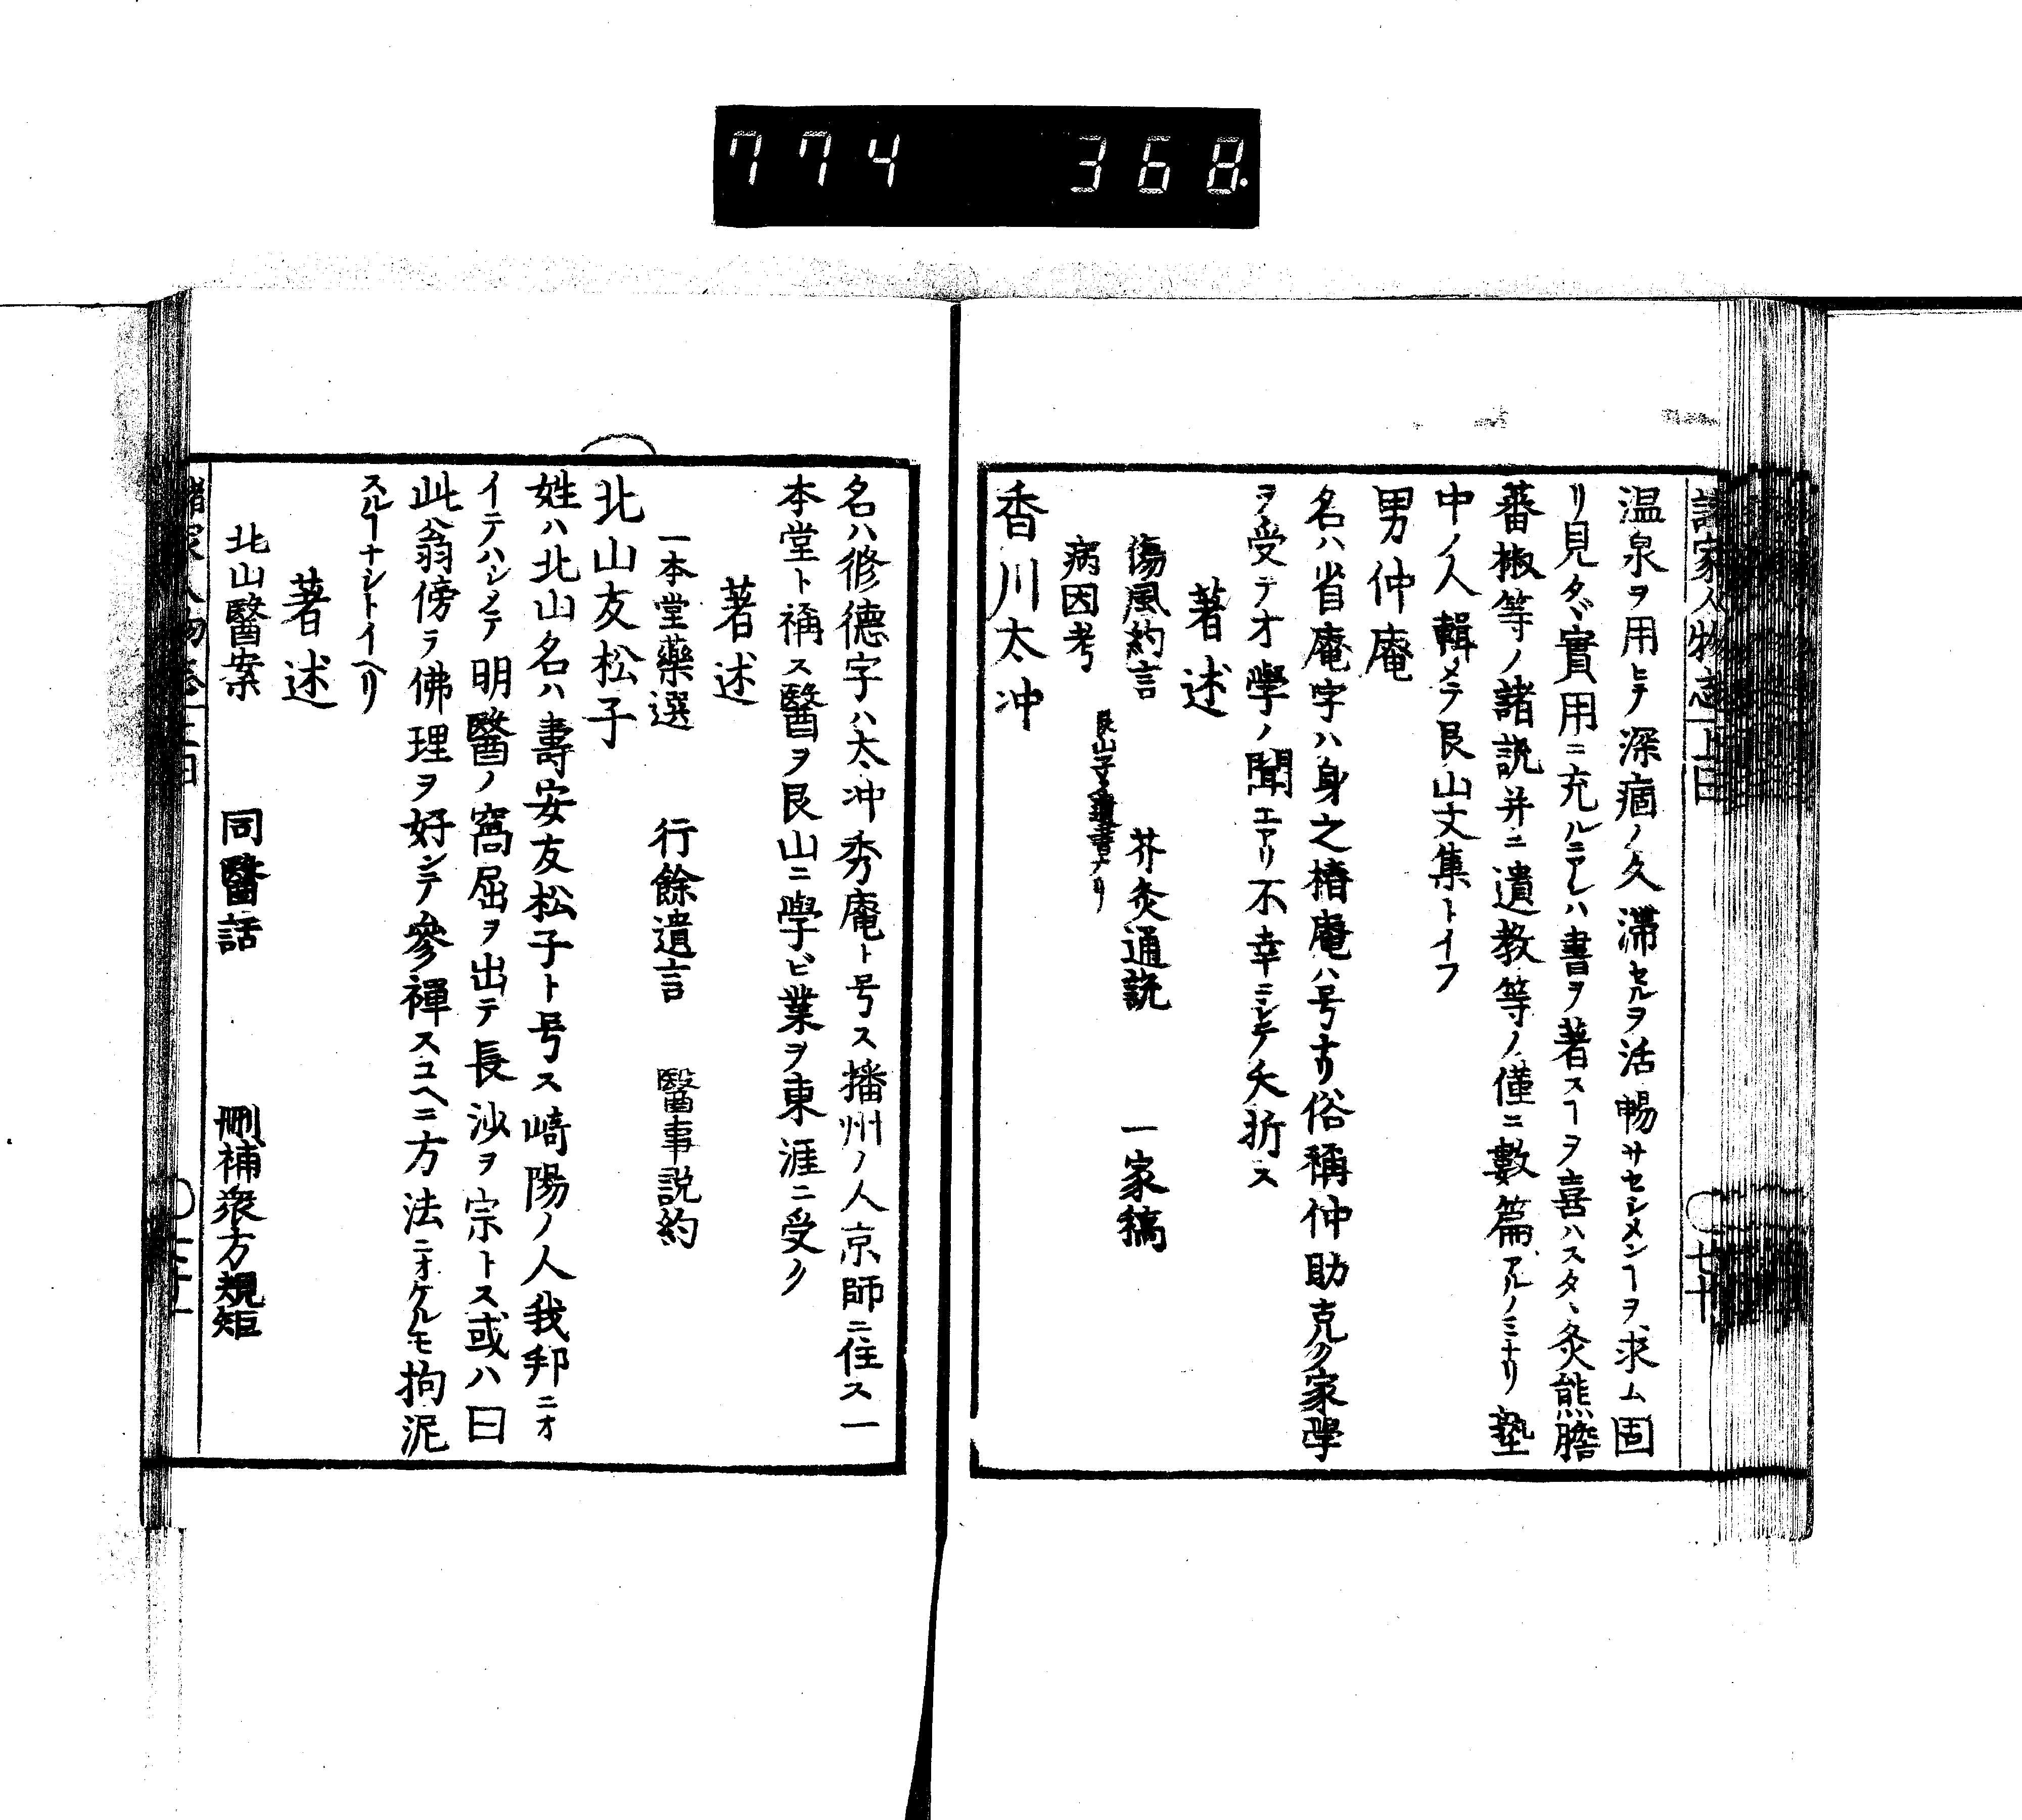 774 368.
諸家人物志 上
七十
温泉ヲ用ヒテ深痼ノ久滞セルヲ活暢サセシメンヿヲ求ム固
リ見タヾ實用ニ充ルニアレハ書ヲ著スヿヲ喜ハスタヽ灸熊膽
蕃椒等ノ諸説并ニ遺教等ノ僅ニ數篇アルノミナリ塾
中ノ人輯メテ艮山文集トイフ
男仲庵
名ハ省庵字ハ身之椿庵ハ号ナリ俗稱仲助克ク家學
ヲ受テオ學ノ聞エアリ不幸ニシテ夭折ス
著述
傷風約言 芥灸通説 一家稿
病因考 艮山子ノ遺書ナリ
香川太冲
名ハ修德字ハ太冲秀庵ト号ス播州ノ人京師ニ住ス一
本堂ト稱ス醫ヲ艮山ニ學ビ業ヲ東涯ニ受ク
著述
一本堂藥選 行餘遺言 醫事説約
北山友松子
姓ハ北山名ハ壽安友松子ト号ス崎陽ノ人我邦ニオ
イテハシメテ明醫ノ窩屈ヲ出テ長沙ヲ宗トス或ハ曰
此翁傍ラ佛理ヲ好ンテ參禪スユヘニ方法ニオケルモ拘泥
スルヿナシトイヘリ
著述
北山醫案 同醫話 刪補衆方規矩